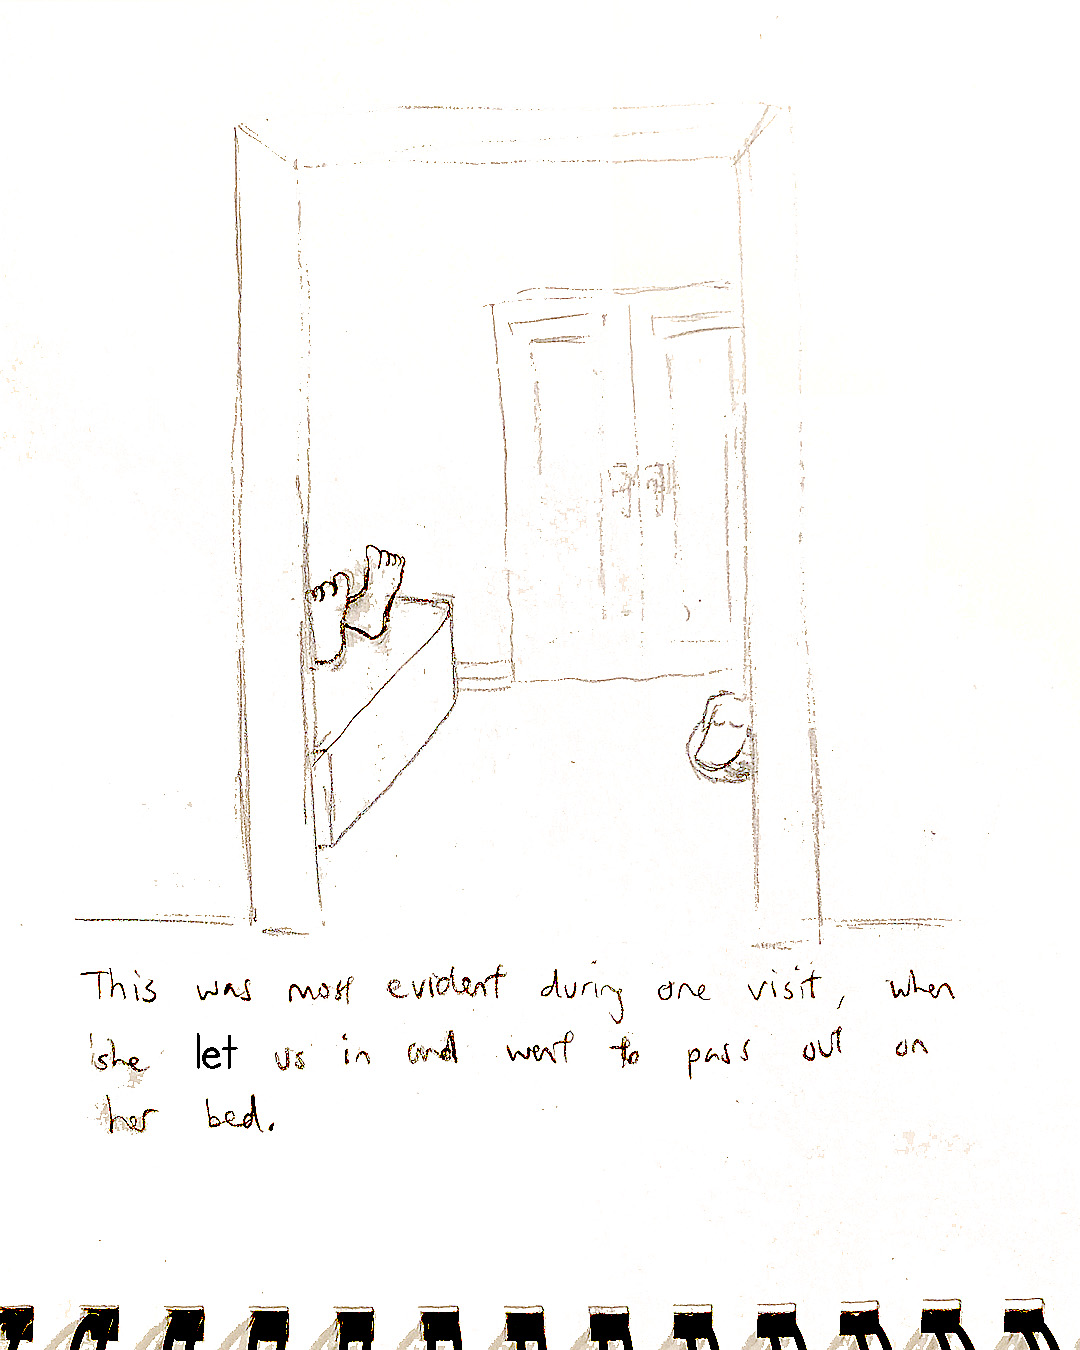 This was most evident during one visit, when
she let us in and went to pass out on
her bed.